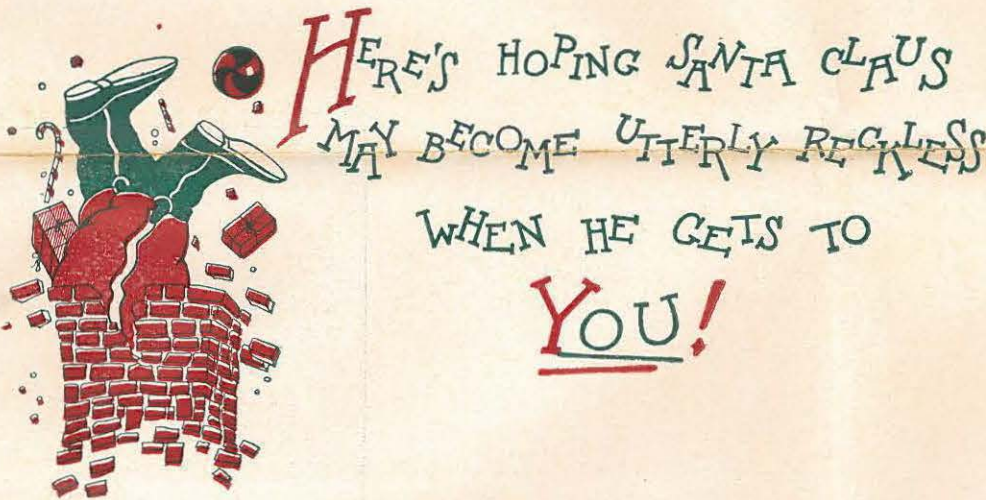 HERE'S HOPING SANTA CLAUS
MAY BECOME UTTERLY RECKLESS
WHEN HE GETS TO
YOU!